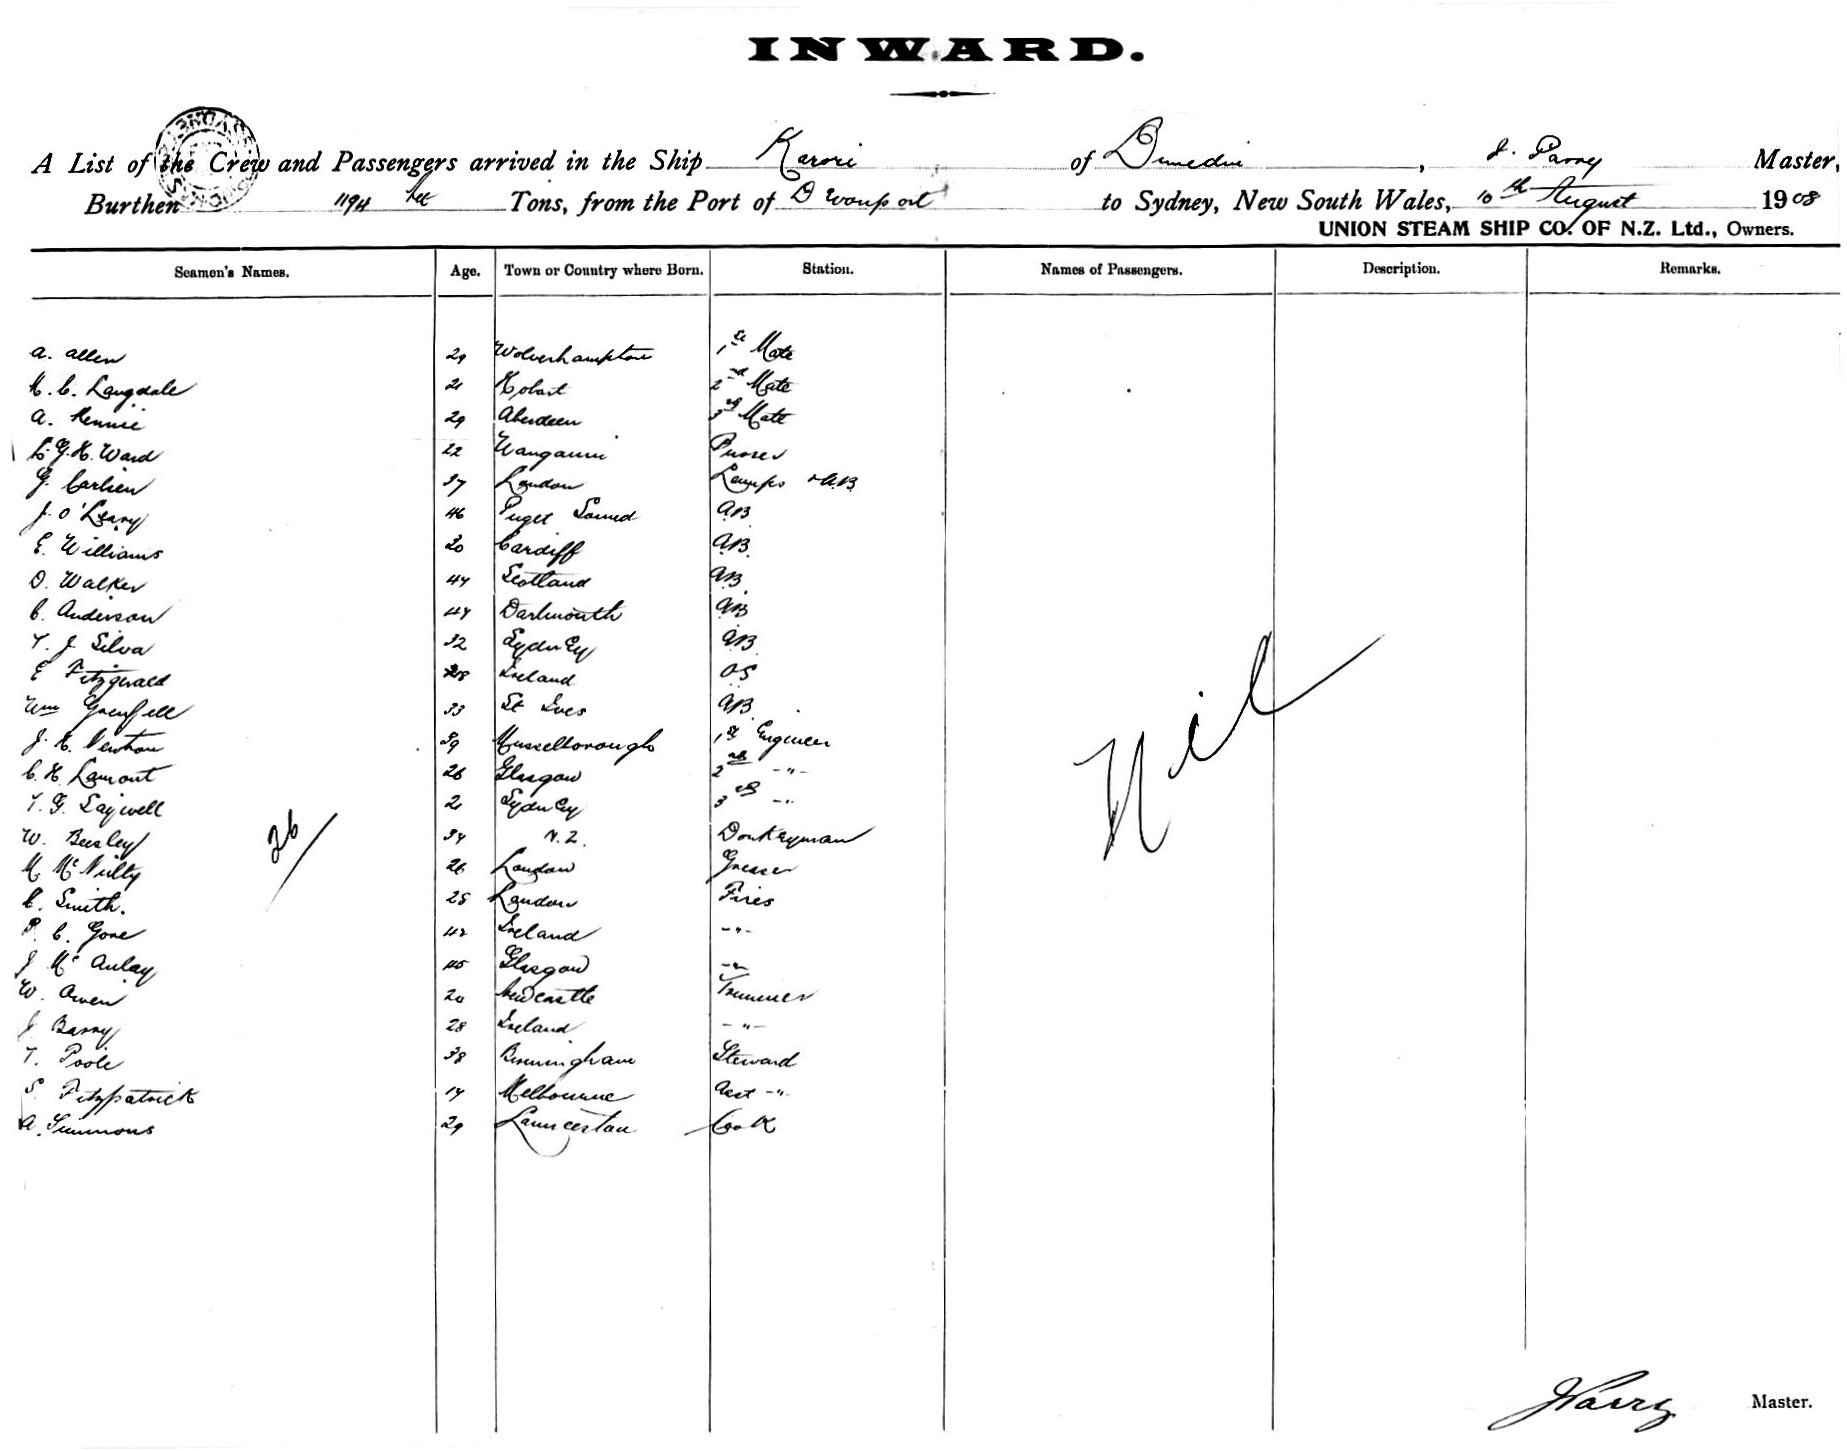 INWARD.
A List of the Crew and Passengers arrived in the Ship Karori of Dunedin, J. Parry Master,
Burthen 1194 Tons, from the Port of Devonport to Sydney, New South Wales, 10th August 1908
UNION STEAM SHIP CO. OF N.Z. Ltd., Owners.
Seamen's Names. Age. Town or Country where Born. Station. Names of Passengers. Description. Remarks.
A. Allen 29 Wolverhampton 1st Mate
H. C. Langdale 21 Hobart 2nd Mate
A. Rennie 29 Aberdeen 3rd Mate
L. G. H. Ward 22 Wanganui Purser
G. Carlsen 37 London Lamps & AB
J. O'Leary 46 Puget Sound AB
E. Williams 20 Cardiff AB
D. Walker 44 Scotland AB
C. Anderson 44 Dartmouth AB
T. J. Silva 32 Sydney AB
E Fitzgerald 28 Ireland OS
Wm Grenfell 33 St Ives AB
J. H. Newton 39 Musselborough 1st Engineer
C. H Lamont 26 Glasgow 2nd -"-
T. G. Saywell 21 Sydney 3rd -"-
W. Beesley 34 N.Z. Donkeyman
M. McNulty 26 London Greaser
C. Smith. 25 London Fires
P. C. Gore 42 Ireland -"-
J McAulay 45 Glasgow -"-
W. Owen 20 Newcastle Trimmer
J Barry 28 Ireland -"-
T. Poole 38 Birmingham Steward
S. Fitzpatrick 17 Melbourne Asst -"-
A. Simmons 29 Launceston Cook
26
Nil
J Parry Master.